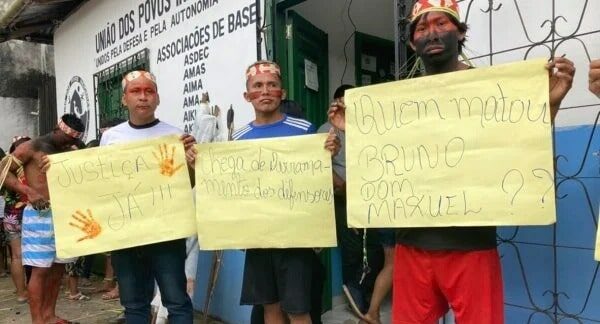 UNIÃO DOS POVOS
UNIDOS PELA DEFESA E PELA AUTONOMIA
ASSOCIAÇÕES DE BASE
ASDEC
AMAS
AIMA
JUSTIÇA
JÁ!!!
Chega de
mento dos defensores
Quem matou
BRUNO
DOM
MAXUEL ??